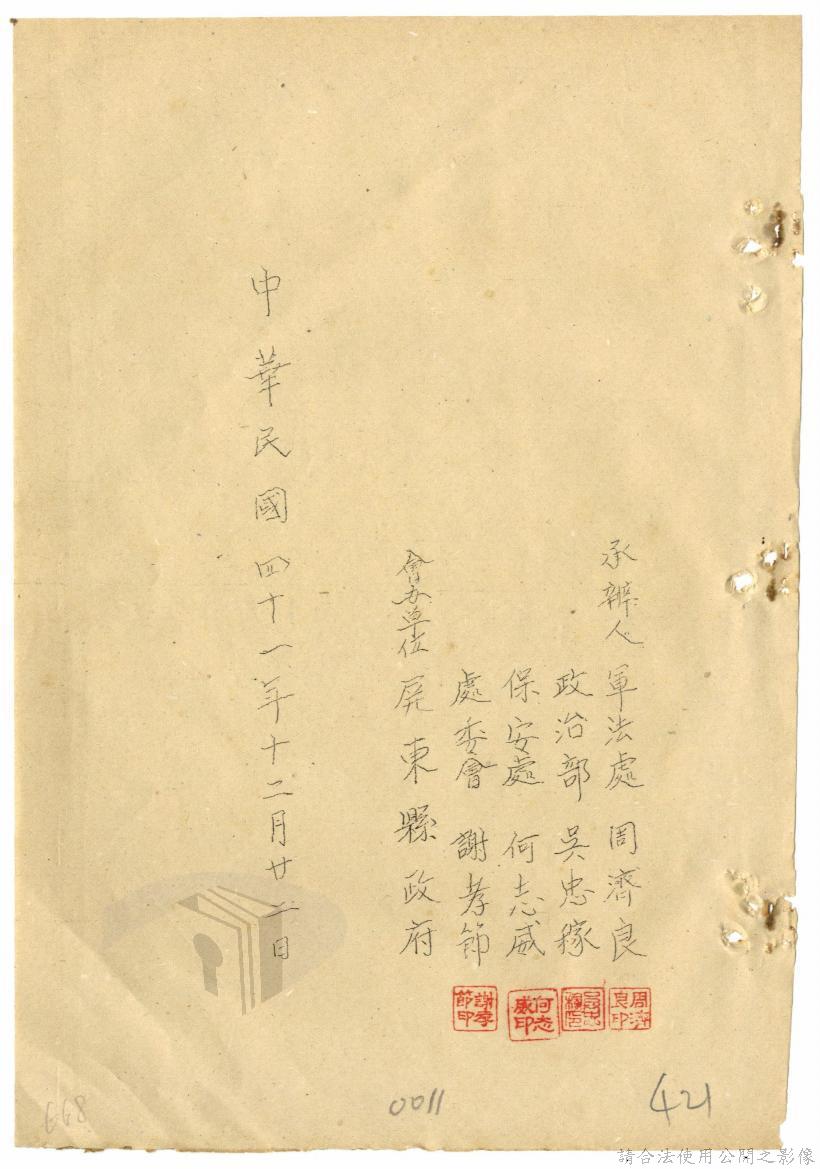 承辦人 軍法處 周濟良
政治部 吳忠稼
保安處 何志威
處委會 謝孝節
會办單位 屏東縣政府
中華民國四十一年十二月廿二日
周濟良印
何志威印
謝孝節印
421
0011
請合法使用公開之影像